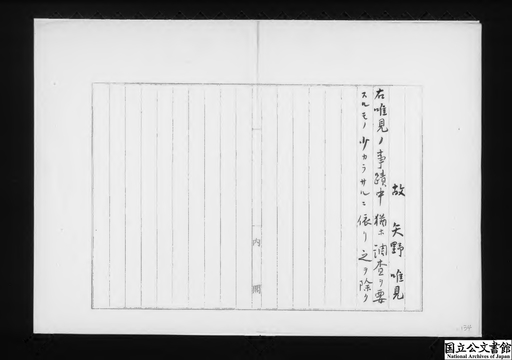 故 矢野唯見
右唯見ノ事蹟中猶ホ調査ヲ要
スルモノ少カラサルニ依リ之ヲ除ク
内閣
国立公文書館
National Archives of Japan